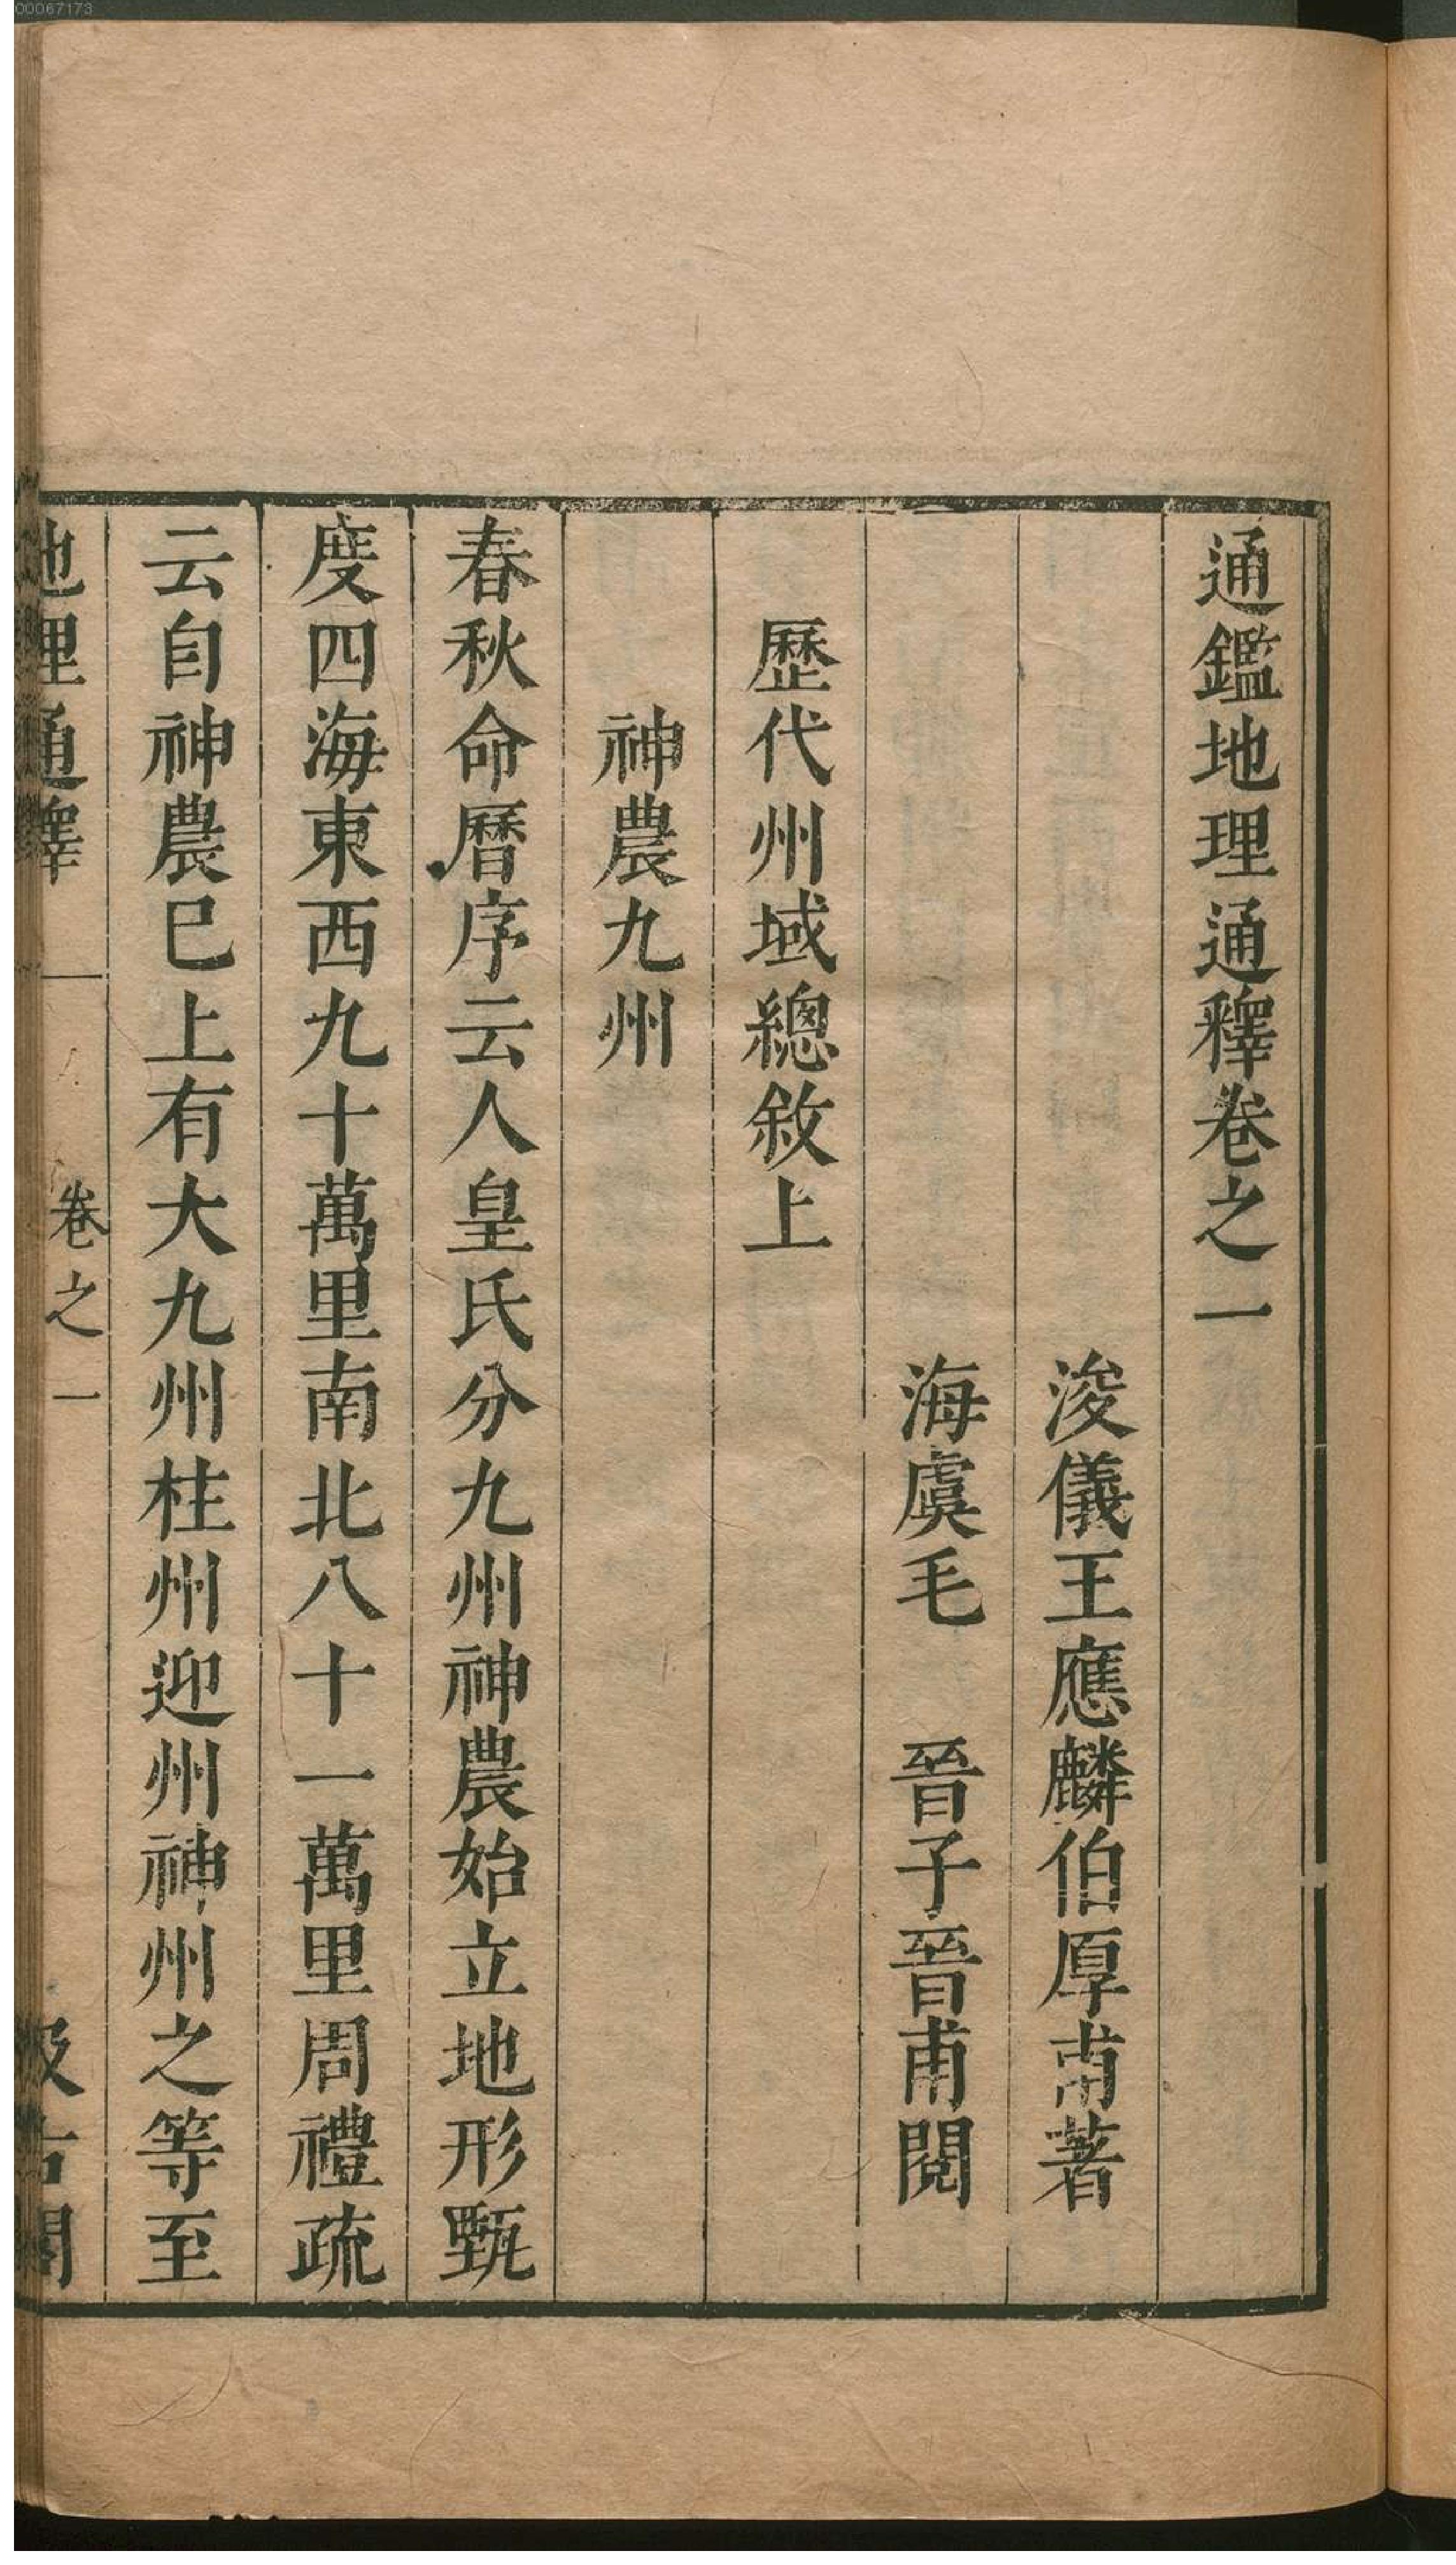 00067173
通鑑地理通釋卷之一
浚儀王應麟伯厚甫著
海虞毛　晉子晉甫閱
歷代州域總敘上
神農九州
春秋命曆序云人皇氏分九州神農始立地形甄
度四海東西九十萬里南北八十一萬里周禮疏
云自神農巳上有大九州柱州迎州神州之等至
地理通釋　卷之一　汲古閣